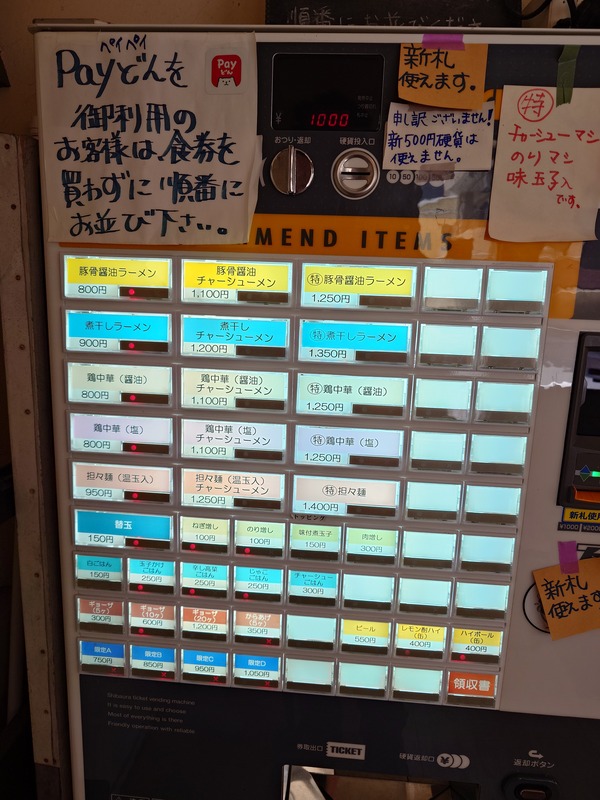 順番にお並びくださ
ペイペイ
Payどんを
Pay
どん
御利用の
お客様は、食券を
買わずに順番に
お並び下さい。
¥ 1000
おつり・返却
硬貨投入口
新札
使えます。
申し訳ございません!
新500円硬貨は
使えません。
10 50 100
特
チャーシューマシ
のりマシ
味玉子入
です。
MEND ITEMS
豚骨醤油ラーメン
800円
豚骨醤油
チャーシューメン
1,100円
特豚骨醤油ラーメン
1,250円
煮干しラーメン
900円
煮干し
チャーシューメン
1,200円
特煮干しラーメン
1,350円
鶏中華(醤油)
800円
鶏中華(醤油)
チャーシューメン
1,100円
特鶏中華(醤油)
1,250円
鶏中華(塩)
800円
鶏中華(塩)
チャーシューメン
1,100円
特鶏中華(塩)
1,250円
担々麺(温玉入)
950円
担々麺(温玉入)
チャーシューメン
1,250円
特担々麺
1,400円
トッピング
替玉
150円
ねぎ増し
100円
のり増し
100円
味付煮玉子
150円
肉増し
300円
白ごはん
150円
玉子かけ
ごはん
250円
辛し高菜
ごはん
250円
じゃこ
ごはん
250円
チャーシュー
ごはん
300円
ギョーザ
(5ヶ)
300円
ギョーザ
(10ヶ)
600円
ギョーザ
(20ヶ)
1,200円
からあげ
(5ヶ)
350円
ビール
550円
レモン酎ハイ
(缶)
400円
ハイボール
(缶)
400円
限定A
750円
限定B
850円
限定C
950円
限定D
1,050円
領収書
新札使
¥1000 ¥200
新札
使えます
Shibaord ticket vending machine
It is easy to use and choose
Most of everything is there
Friendly operation with reliable
券取出口 TICKET
硬貨返却口
返却ボタン